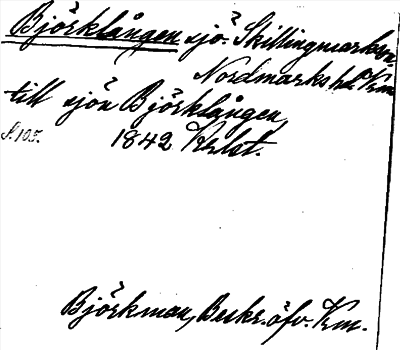 Björklången sjö. Skillingmarks sn.
Nordmarks hd. Vrm
till sjön Björklången
S. 105. 1842 Krbt.
Björkman, Beskr. öfv. Vrm.